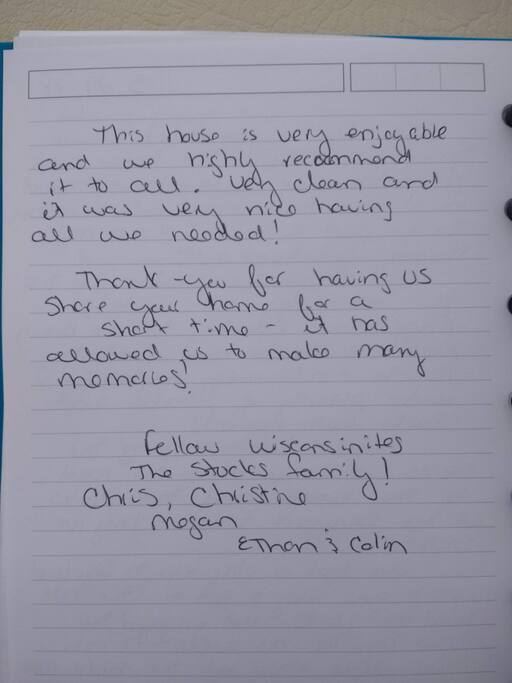 This house is very enjoyable
and we highly recommend
it to all. Very clean and
it was very nice having
all we needed!
Thank-you for having us
share your home for a
short time - it has
allowed us to make many
memories!
Fellow Wisconsinites
The Stucks family!
Chris, Christine
Megan
Ethan & Colin